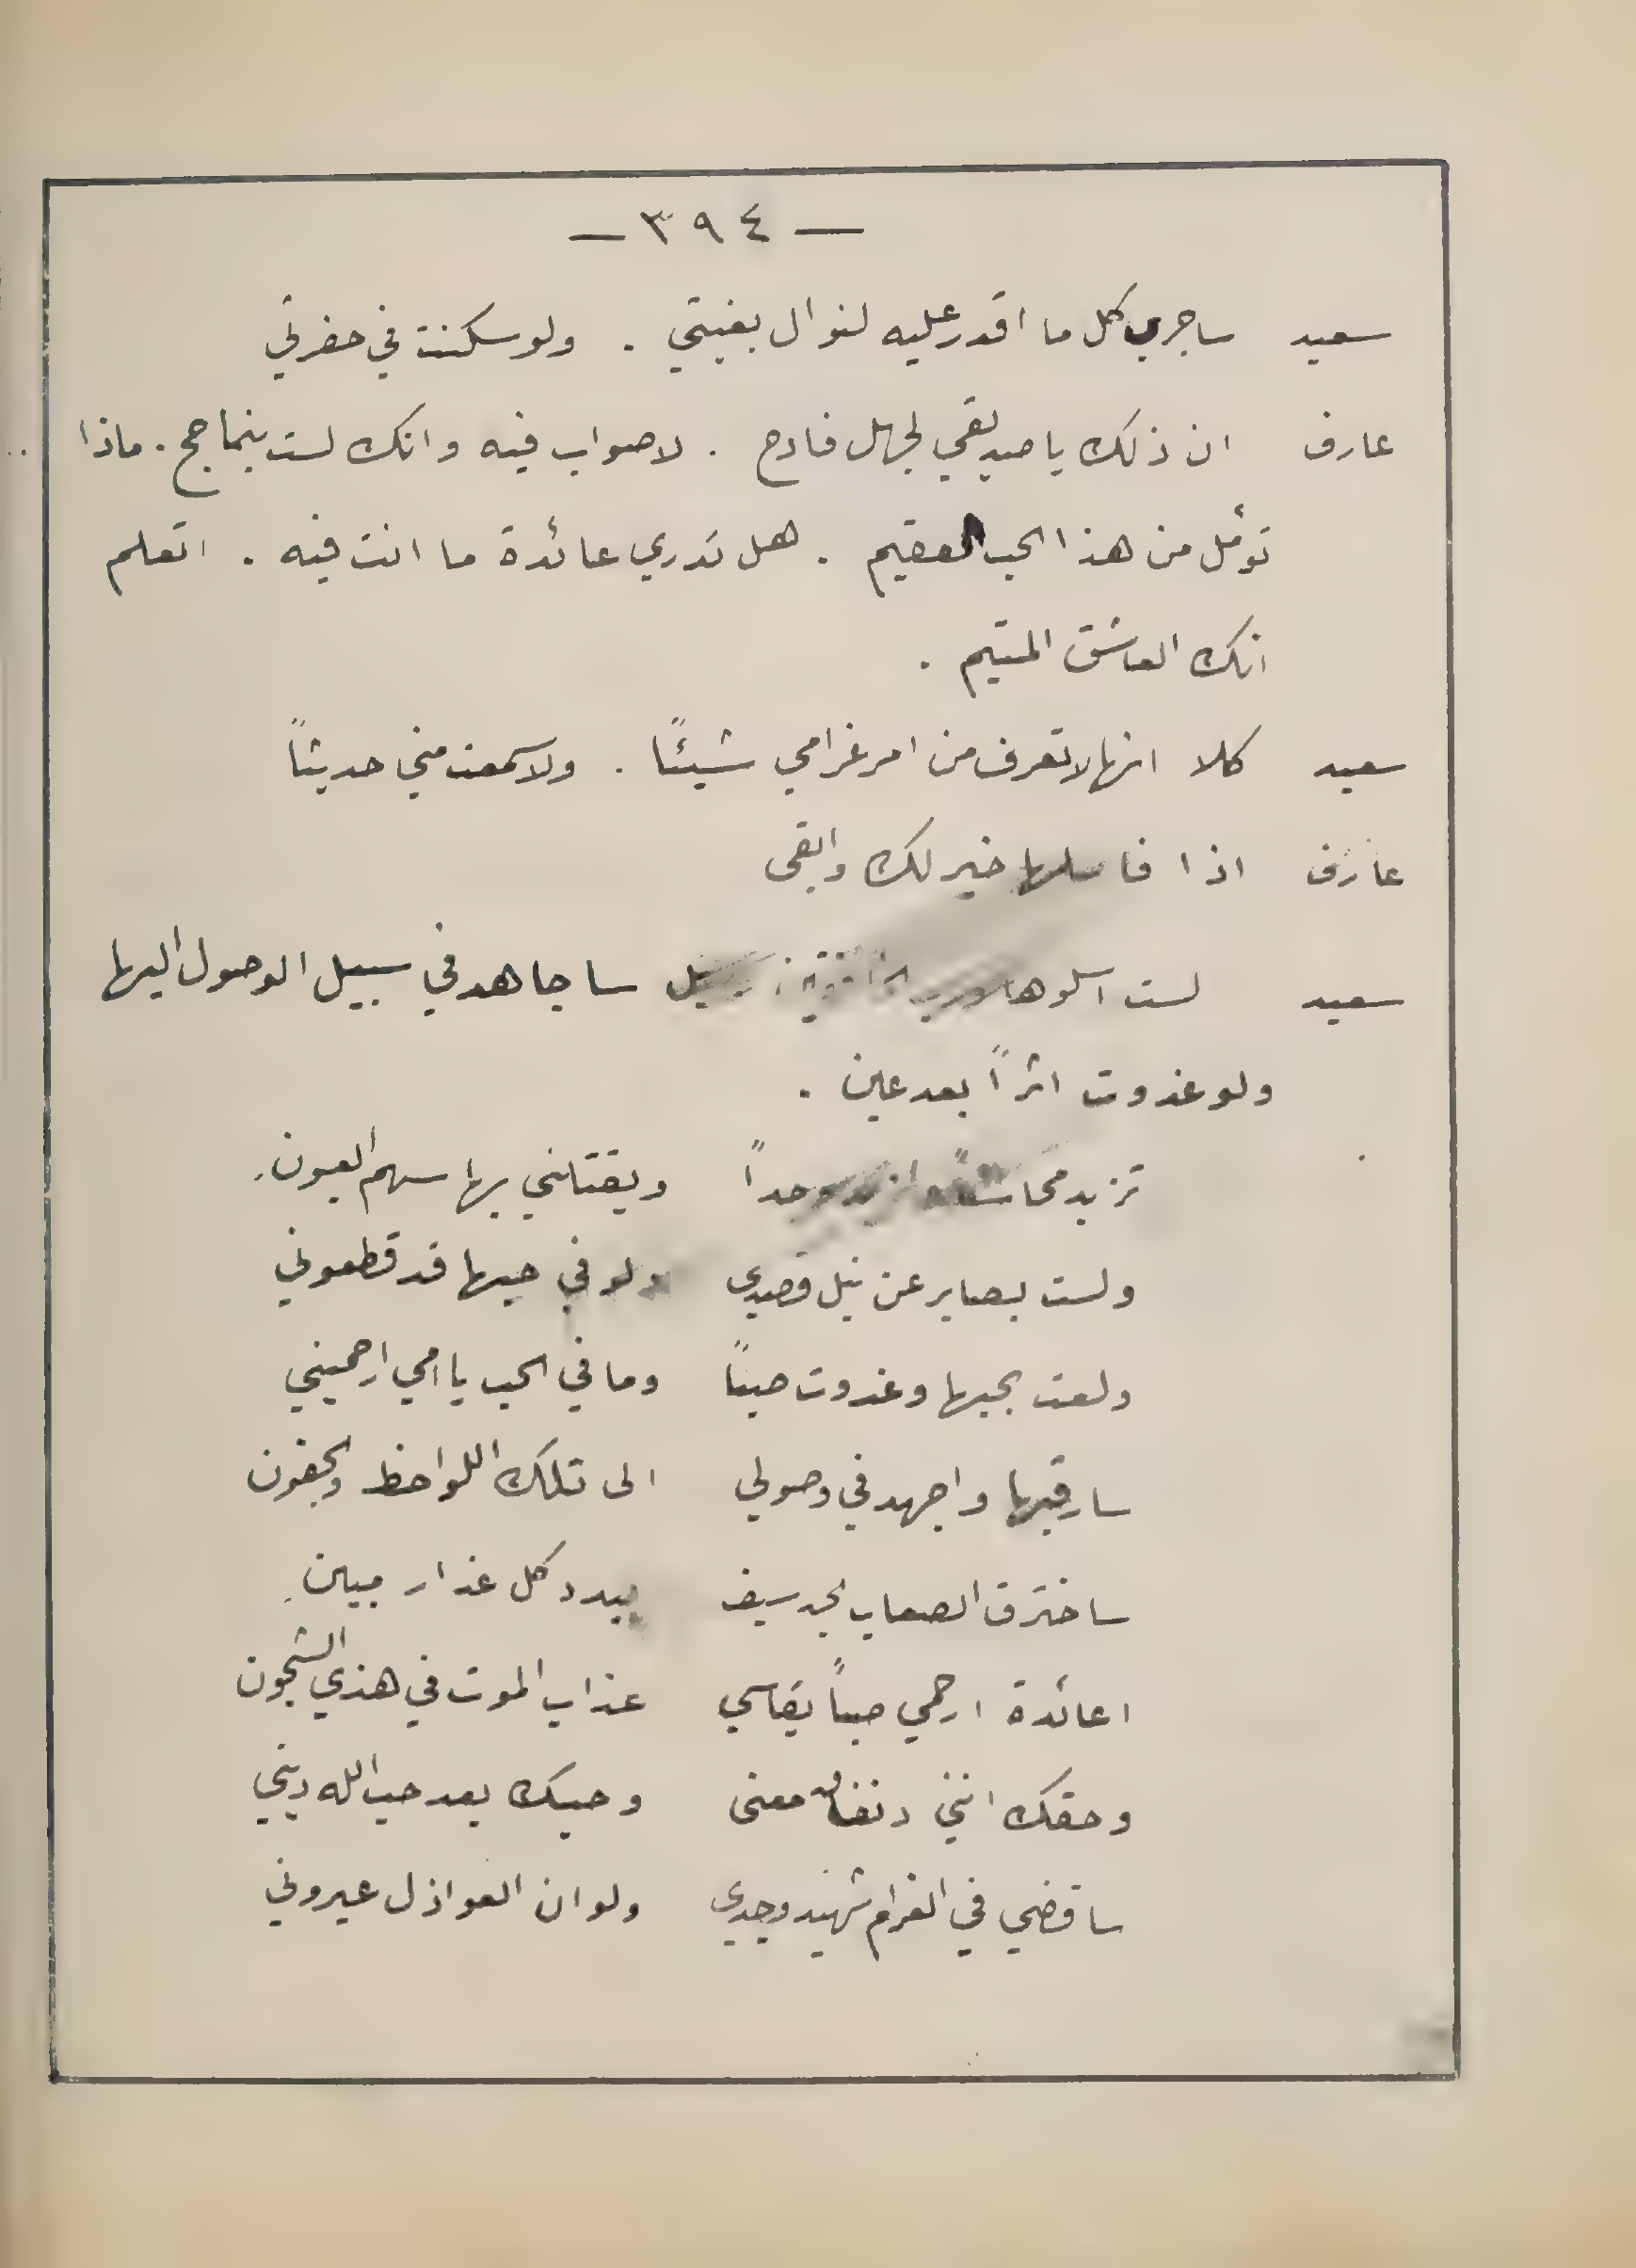 — ٣٩٤ —
سعيد ساجري كل ما اقدر عليه لنوال بغيتي . ولو سكنت في حفرتي
عارف ان ذلك يا صديقي لجهل فادح . لا صواب فيه وانك لست بناجح . ماذا
تؤمل من هذا الحب العقيم . هل تدري عائدة ما انت فيه . اتعلم
انك العاشق المتيم .
سعيد كلا انها لا تعرف من امر غرامي شيئًا . ولا سمعت مني حديثاً
عارف اذا فاسلها خير لك وابقى
سعيد لست اسلوها ورب ساجاهد في سبيل الوصول اليها
ولو غدوت اثراً بعد عين .
تزيد محاسناً وازيد وجداً ويقتلني بها سهم العيون
ولست بصابر عن نيل قصدي ولو في حبها قد قطعوني
ولعت بحبها وغدوت صباً وما في الحب يا امي ارحميني
سارقبها واجهد في وصولي الى تلك اللواحظ والجفون
ساخترق الصعاب بحد سيف يبدد كل غدار مبين
اعائدة ارحمي صباً يقاسي عذاب الموت في هذي الشجون
وحقك انني دنف معنى وحبك بعد حب الله ديني
ساقضي في الغرام شهيد وجدي ولو ان العواذل عيروني